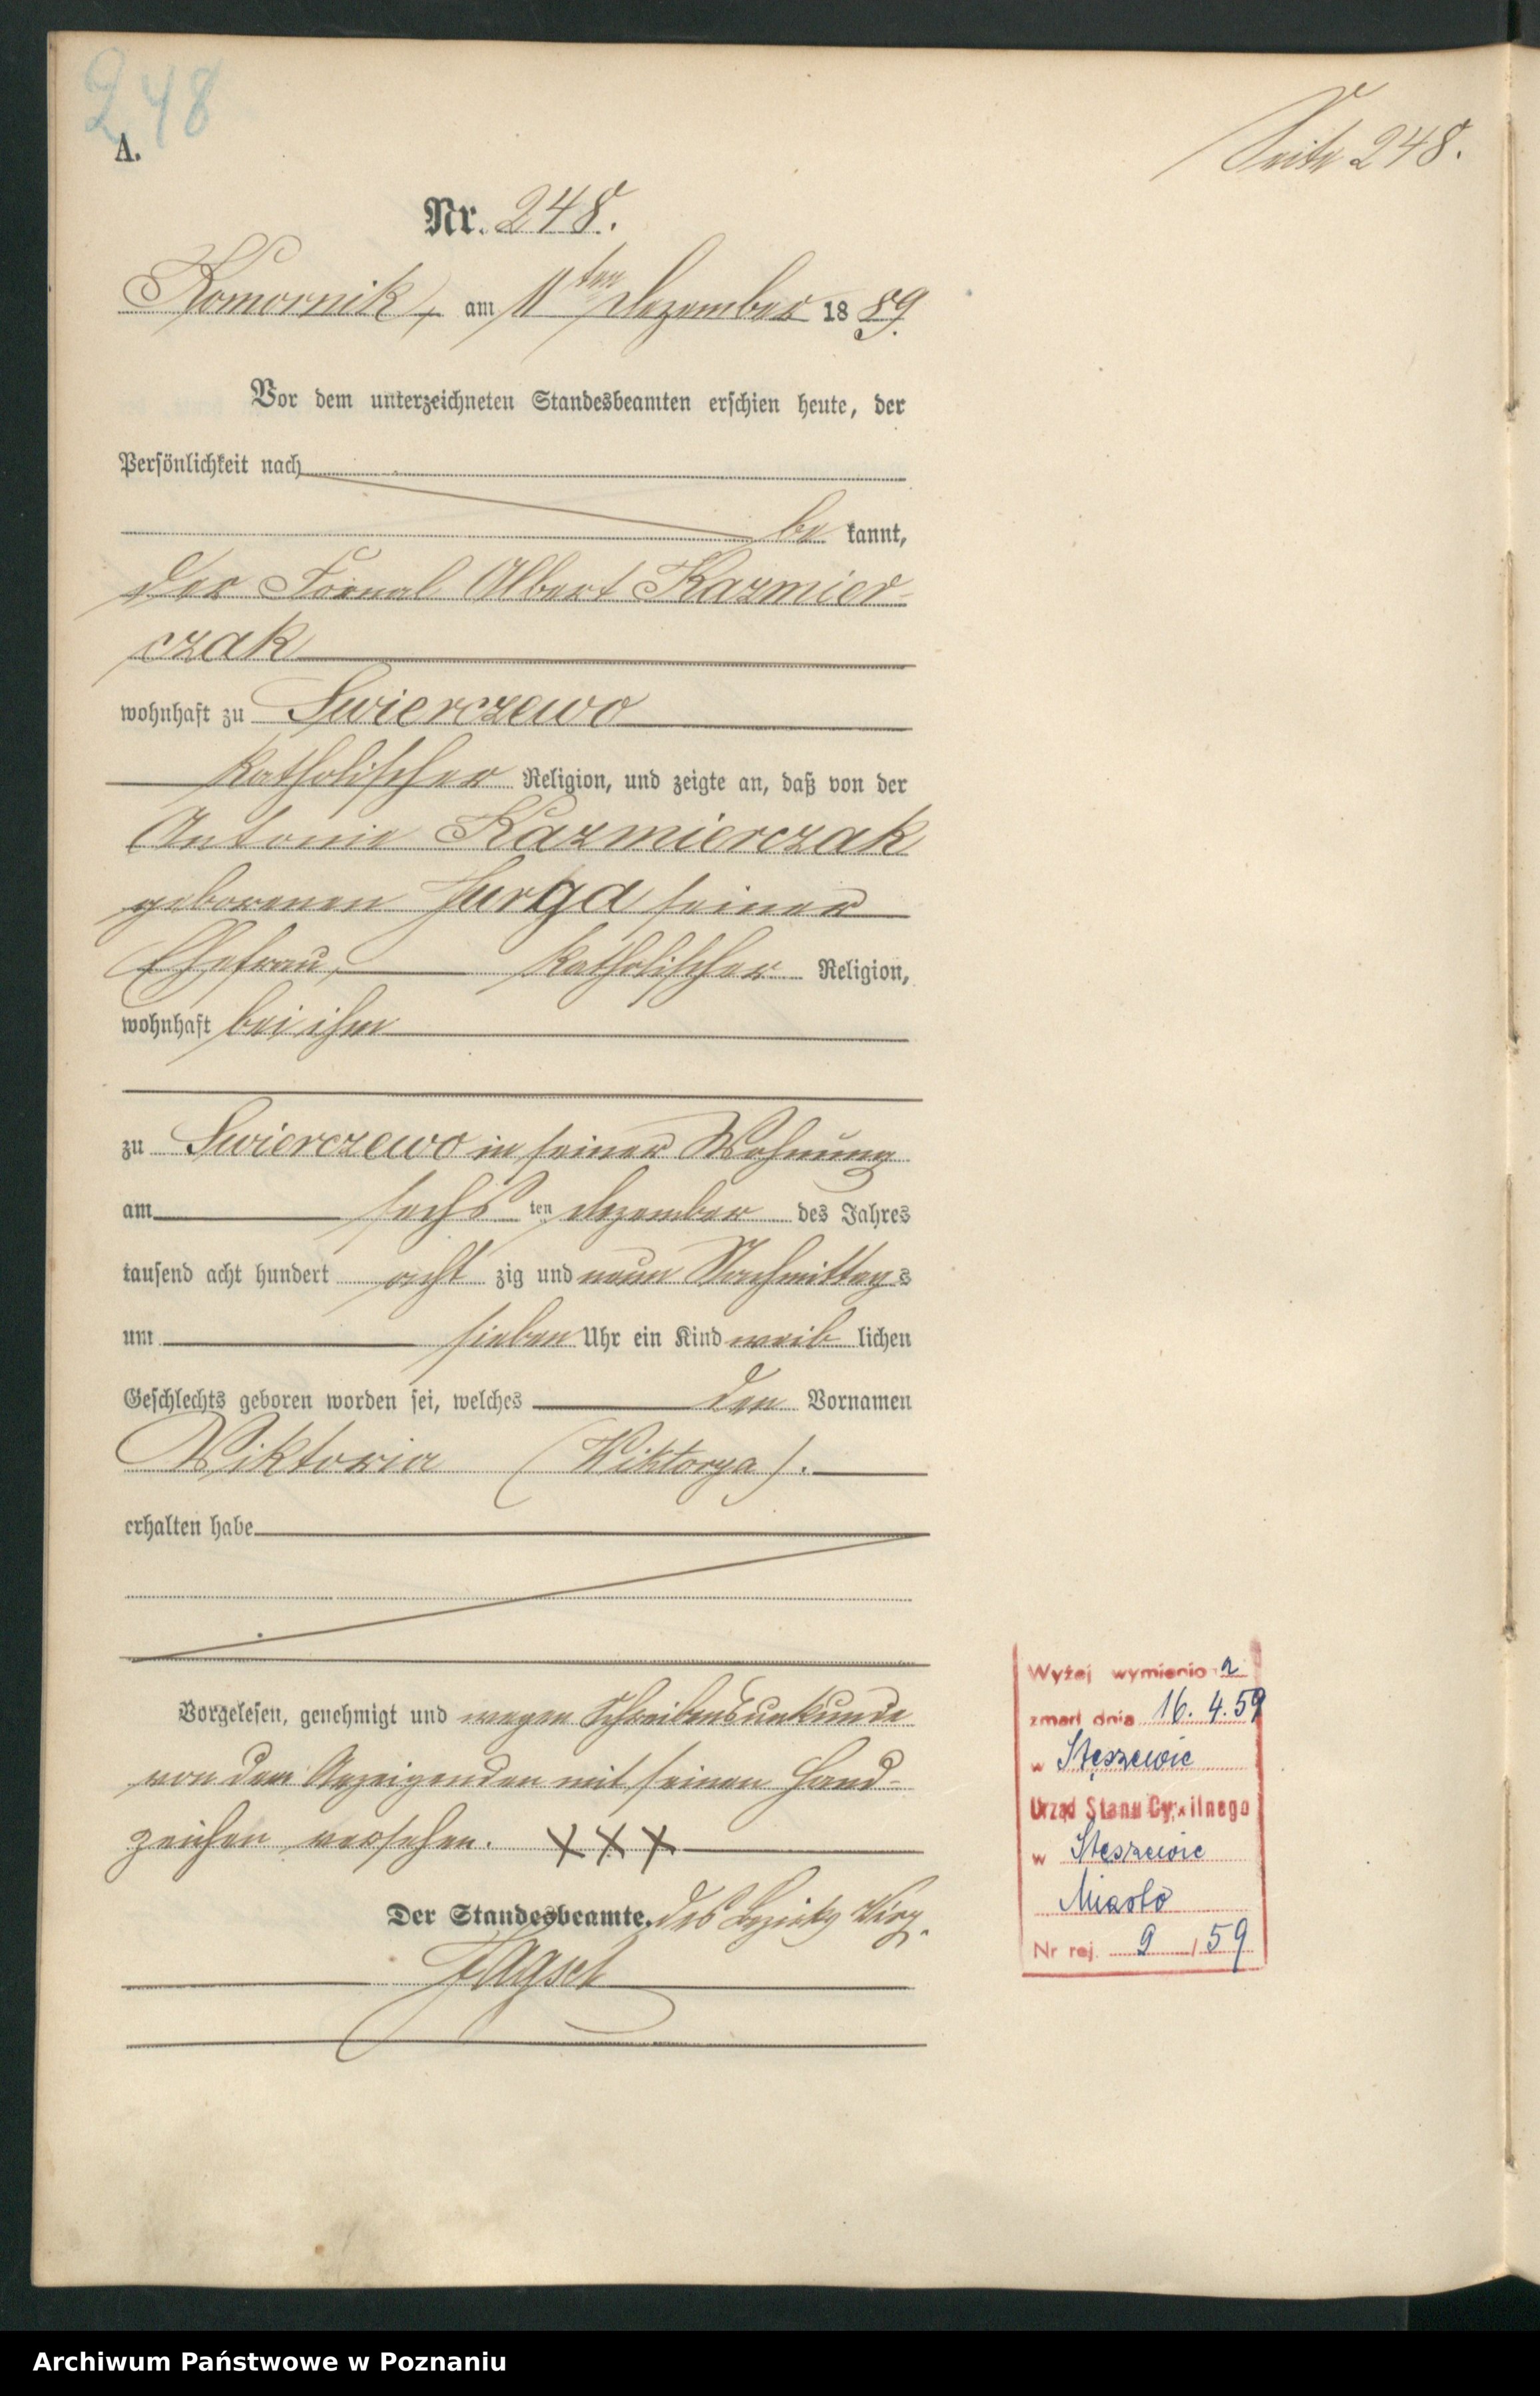 248
A.
Seite 248.
Nr. 248.
Komornik, am 11ten Dezember 1889.
Vor dem unterzeichneten Standesbeamten erschien heute, der
Persönlichkeit nach
be kannt,
der Fornal Albert Kazmier-
czak
wohnhaft zu Swierczewo
katholischer Religion, und zeigte an, daß von der
Antonie Kazmierczak
geborenen Jurga seiner
Ehefrau, katholischer Religion,
wohnhaft bei ihm
zu Swierczewo in seiner Wohnung
am sechs ten Dezember des Jahres
tausend acht hundert acht zig und neun Nachmittags
um sieben Uhr ein Kind weib lichen
Geschlechts geboren worden sei, welches den Vornamen
Viktoria (Wiktorya).
erhalten habe
Vorgelesen, genehmigt und wegen Schreibensunkunde
von dem Anzeigenden mit seinem Hand-
zeichen versehen. XXX
Der Standesbeamte. des Bezirks Wiry.
Wyżej wymienio a
zmarł dnia 16. 4. 59
w Stęszewie
Urząd Stanu Cywilnego
w Stęszewie
Miasto
Nr rej. 9 / 59
Archiwum Państwowe w Poznaniu